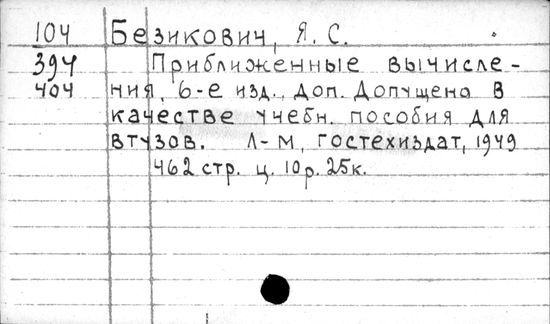 104 Безикович, Я. С.
394 Приближенные вычисле-
404 ния, 6-е изд., доп. Допущено в
качестве учебн. пособия для
втузов. Л-М, Гостехиздат, 1949
462 стр. ц. 10р. 25к.